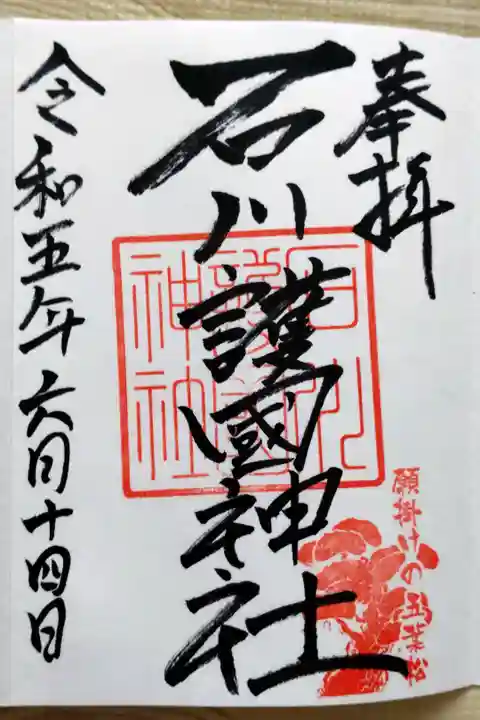 奉拝
石川護國神社
石川護國神社
願掛けの五葉松
令和五年六月十四日